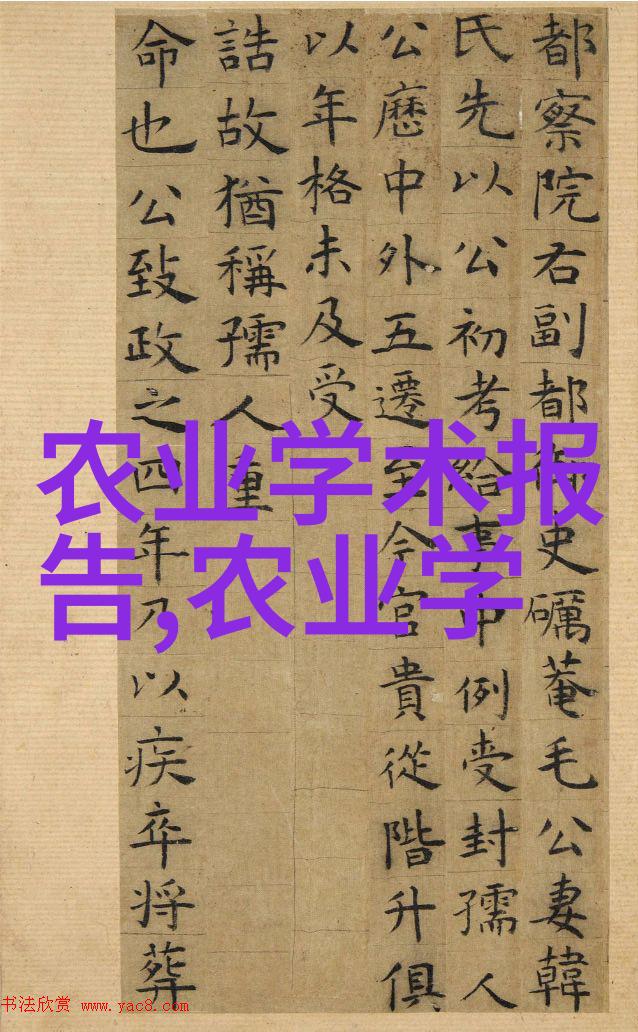 都察院右副都御史礪菴毛公妻韓
氏先以公初考給事中例受封孺人
公歷中外五遷至今官貴從階升俱
以年格未及受
誥故猶稱孺人重
命也公致政之四年乃以疾卒将葬
农业学术报
告,农业学
书法欣赏 www.yac8.com